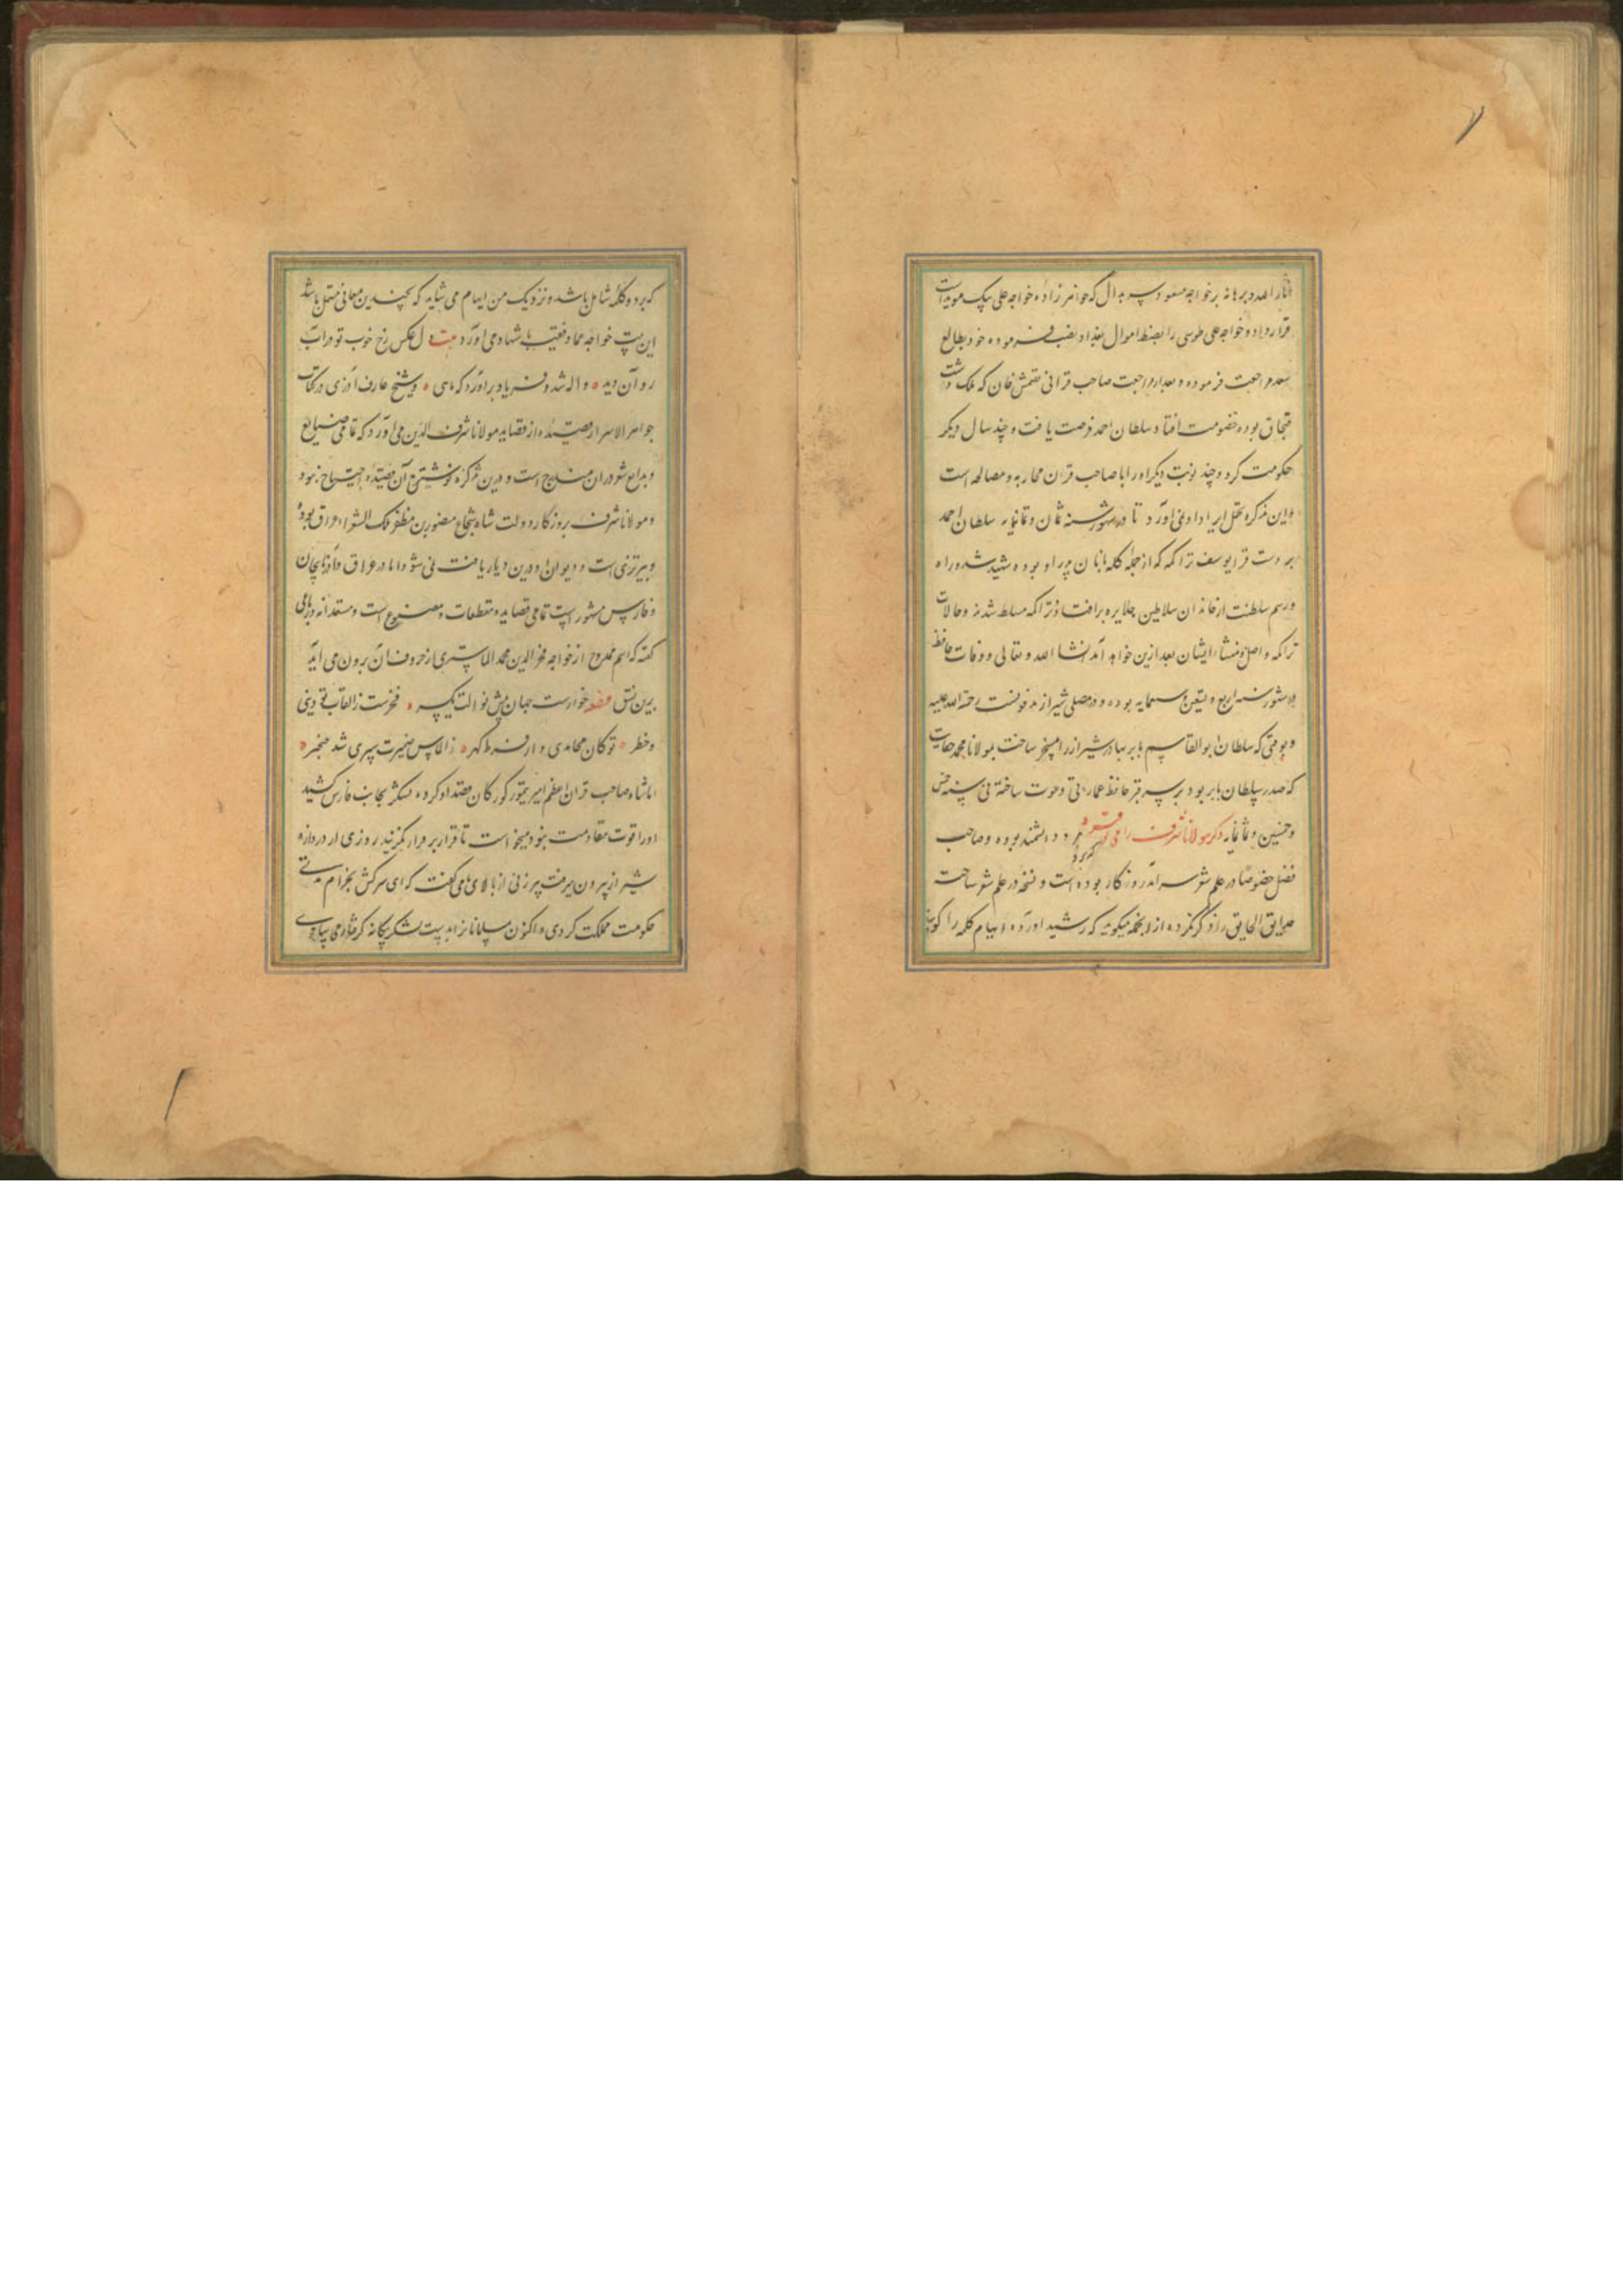 انار الله برهانه بر خواجه مسعود سربدال که خواهرزاده خواجه علی بیک موید است
قرار داد و خواجه علی طوسی را بضبط اموال بغداد نصب فرموده خود بطالع
سعد مراجعت فرموده و بعد از مراجعت صاحب قرانی تقتمش خان که ملک دشت
قبجاق بوده خصومت افتاد سلطان احمد فرصت یافت و چند سال دیگر
حکومت کرد و چند نوبت دیگر او را با صاحب قران محاربه و مصالحه است
و این تذکره تحمل ایراد او نمی آورد تا در شهور سنه ثمان و ثمانمایه سلطان احمد
بر دست قرا یوسف تراکمه که از جمله کله بانان پدر او بوده شهید شد و راه
و رسم سلطنت از خاندان سلاطین جلایره برافتاد و تراکمه مسلط شدند و حالات
تراکمه و اصل و منشاء ایشان بعد ازین خواهد آمد انشا الله و تعالی و وفات حافظ
در شهور سنه اربع و تسعین و سبعمایه بوده و در مصلی شیراز مدفونست رحمة الله علیه
و بوقتی که سلطان ابوالقاسم بابر بهادر شیراز را مسخر ساخت مولانا محمد معمایی
که صدر سلطان بابر بود بر سر قبر حافظ عمارتی مرغوب ساخته فی سنه خمس
و خمسین و ثمانمایه ذکر مولانا شرف رامی مردی دانشمند بوده و صاحب
فضل خصوصا در علم شعر سرآمد روزگار بوده است و نسخه در علم شعر ساخت
حدایق الحقایق را ذکر کرده از انجمله میگوید که رشید آورده ایهام کلمه را گویند
که بر دو کلمه شامل باشد و نزدیک من ایهام می شاید که بچندین معانی مشتمل باشد
این بیت خواجه عماد فقیه باشهاد می آورد بیت دل عکس رخ خوب تو در آب
روان دید واله شد و فریاد برآورد که ماهی و شیخ عارف آذری در کتاب
جواهر الاسرار قصیده از قصاید مولانا شرف الدین می آورد که تمامی صنایع
و بدایع شعر در آن مندرج است و درین تذکره نوشتن آن قصیده احتیاج نبود
و مولانا شرف بروزگار دولت شاه شجاع منصور بن مظفر ملک الشعراء عراق بوده
و تبریزی است و دیوان او درین دیار یافت نمی شود اما در عراق و آذربایجان
و فارس مشهور است تمامی قصاید و مقطعات و مصنوع است و مستعدانه و رباعی
گفته که اسم ممدوح از خواجه فخر الدین محمد الماستری از حروف آن برون می آید
برین نسق قطعه خوارست جهان پیش نوالت یکسر فخرست ز القاب تو دینی
و خطر تو کان محامدی و از فرط گهر ز الماس ضمیرت سپری شد خنجر
اما شاه صاحب قران اعظم امیر تیمور کورکان قصد او کرده لشکر بجانب فارس کشید
او را قوت مقاومت نبود میخواست تا قرار بر فرار گزیند روزی از دروازه
شیراز بیرون میرفت پیرزنی از بالای بام گفت که ای سرکش بحرام مدتی
حکومت مملکت کردی و اکنون مسلمانانرا بدست لشکر بیگانه گرفتار می سازی